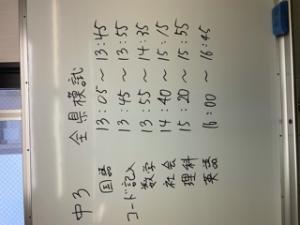 中3 全県模試
国語 13:05～13:45
コード記入 13:45～13:55
数学 13:55～14:35
社会 14:40～15:15
理科 15:20～15:55
英語 16:00～16:45